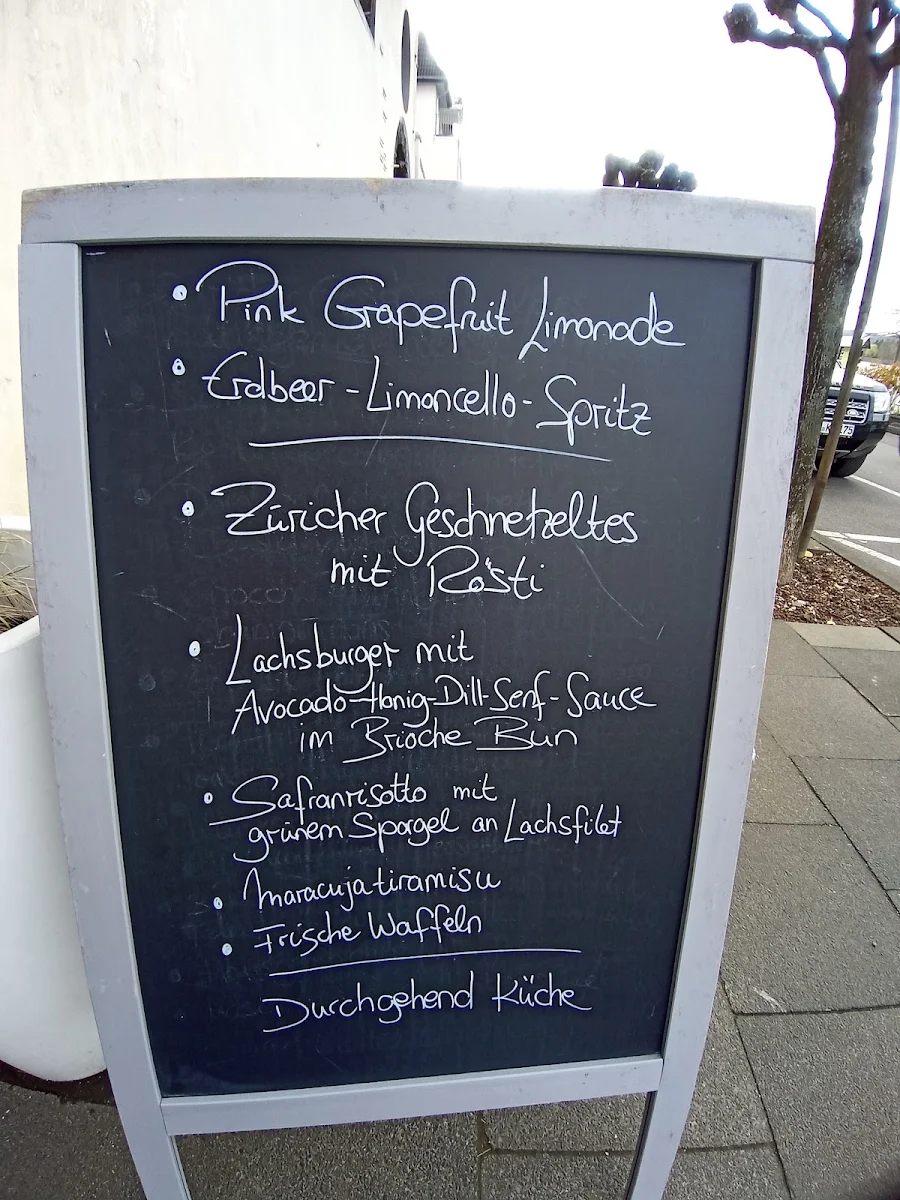 • Pink Grapefruit Limonade
• Erdbeer-Limoncello-Spritz
• Züricher Geschnetzeltes
mit Rösti
• Lachsburger mit
Avocado-Honig-Dill-Senf-Sauce
im Brioche Bun
• Safranrisotto mit
grünem Spargel an Lachsfilet
• Maracujatiramisu
• Frische Waffeln
Durchgehend Küche